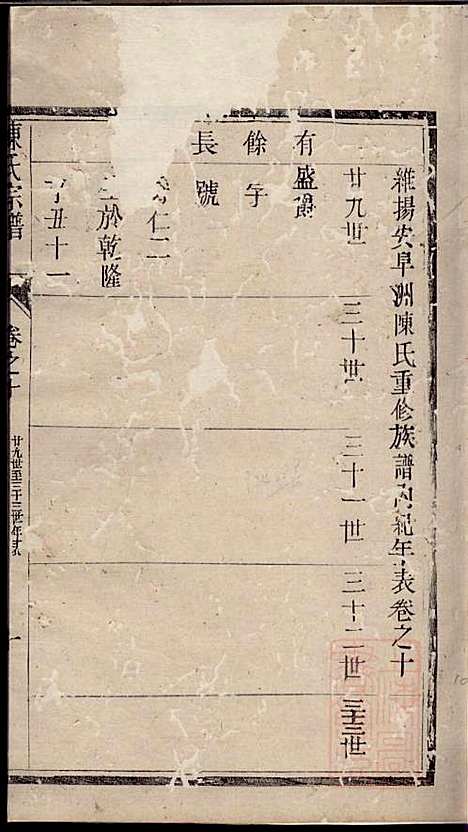 維揚安阜洲陳氏重修族譜內紀年表卷之十
廿九世 三十世 三十一世 三十二世 三十三世
有盛爵
餘子
長號
仁二
於乾隆
丑十一
陳氏宗譜
卷之十
廿九世至三十三世年表
一